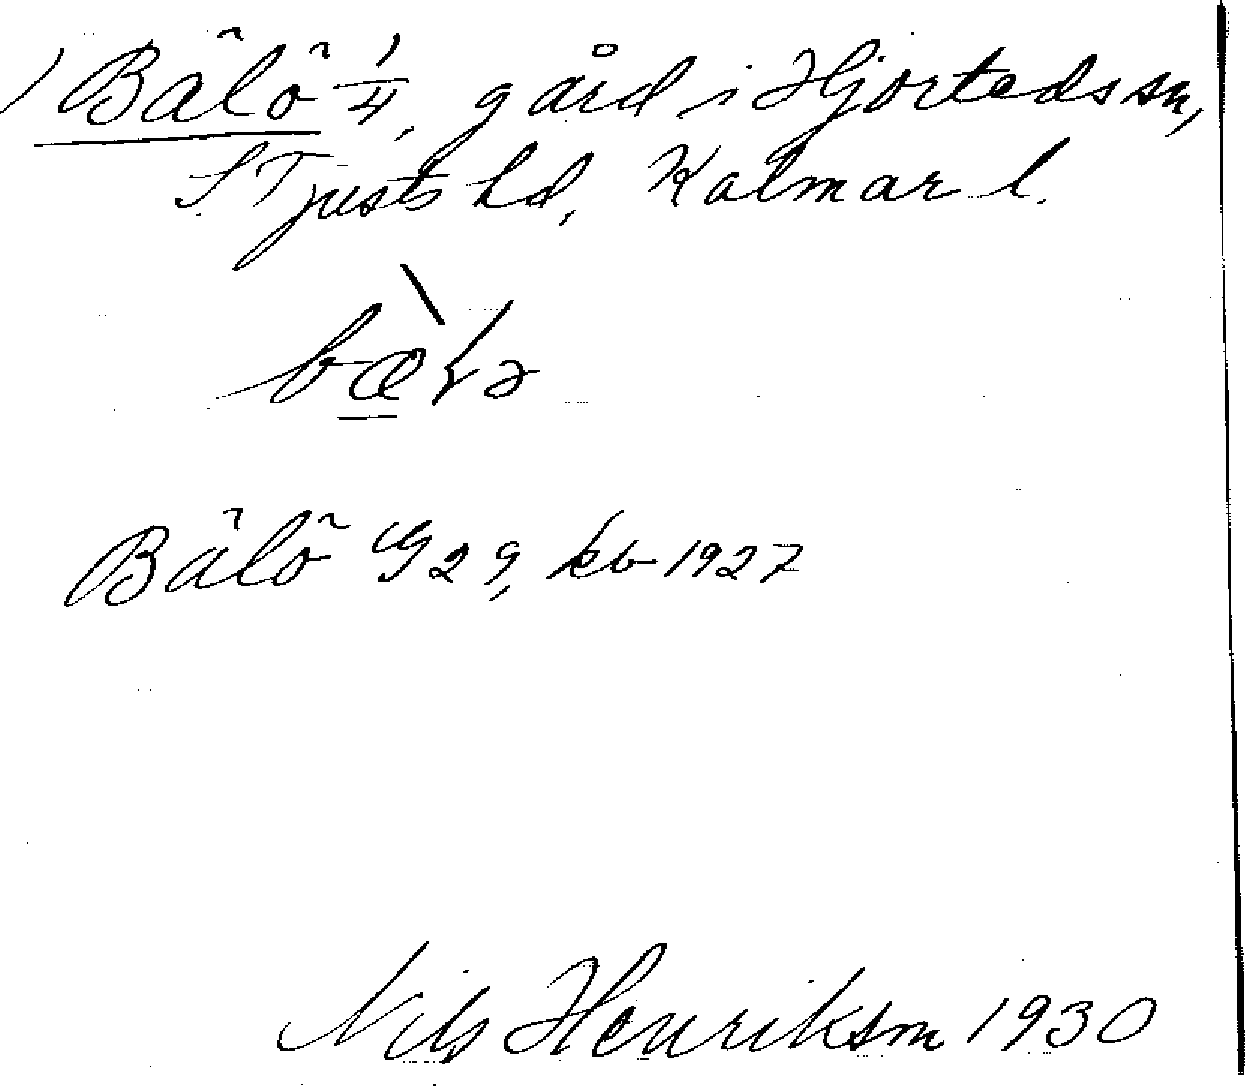 Bälö 1/4, gård i Hjorteds sn,
S. Tjusts hd, Kalmar l.
Bälö G29, kb 1927
Nils Henriksson 1930